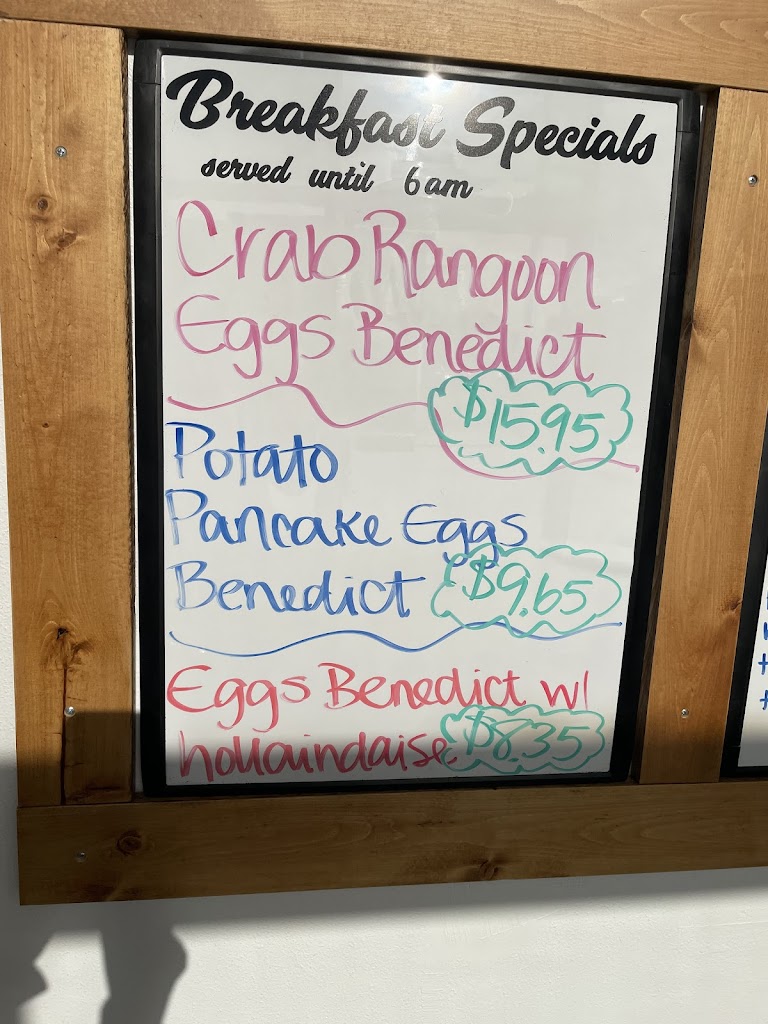 Breakfast Specials
served until 6 am
Crab Rangoon
Eggs Benedict
$15.95
Potato
Pancake Eggs
Benedict $9.65
Eggs Benedict w/
hollaindaise $8.35